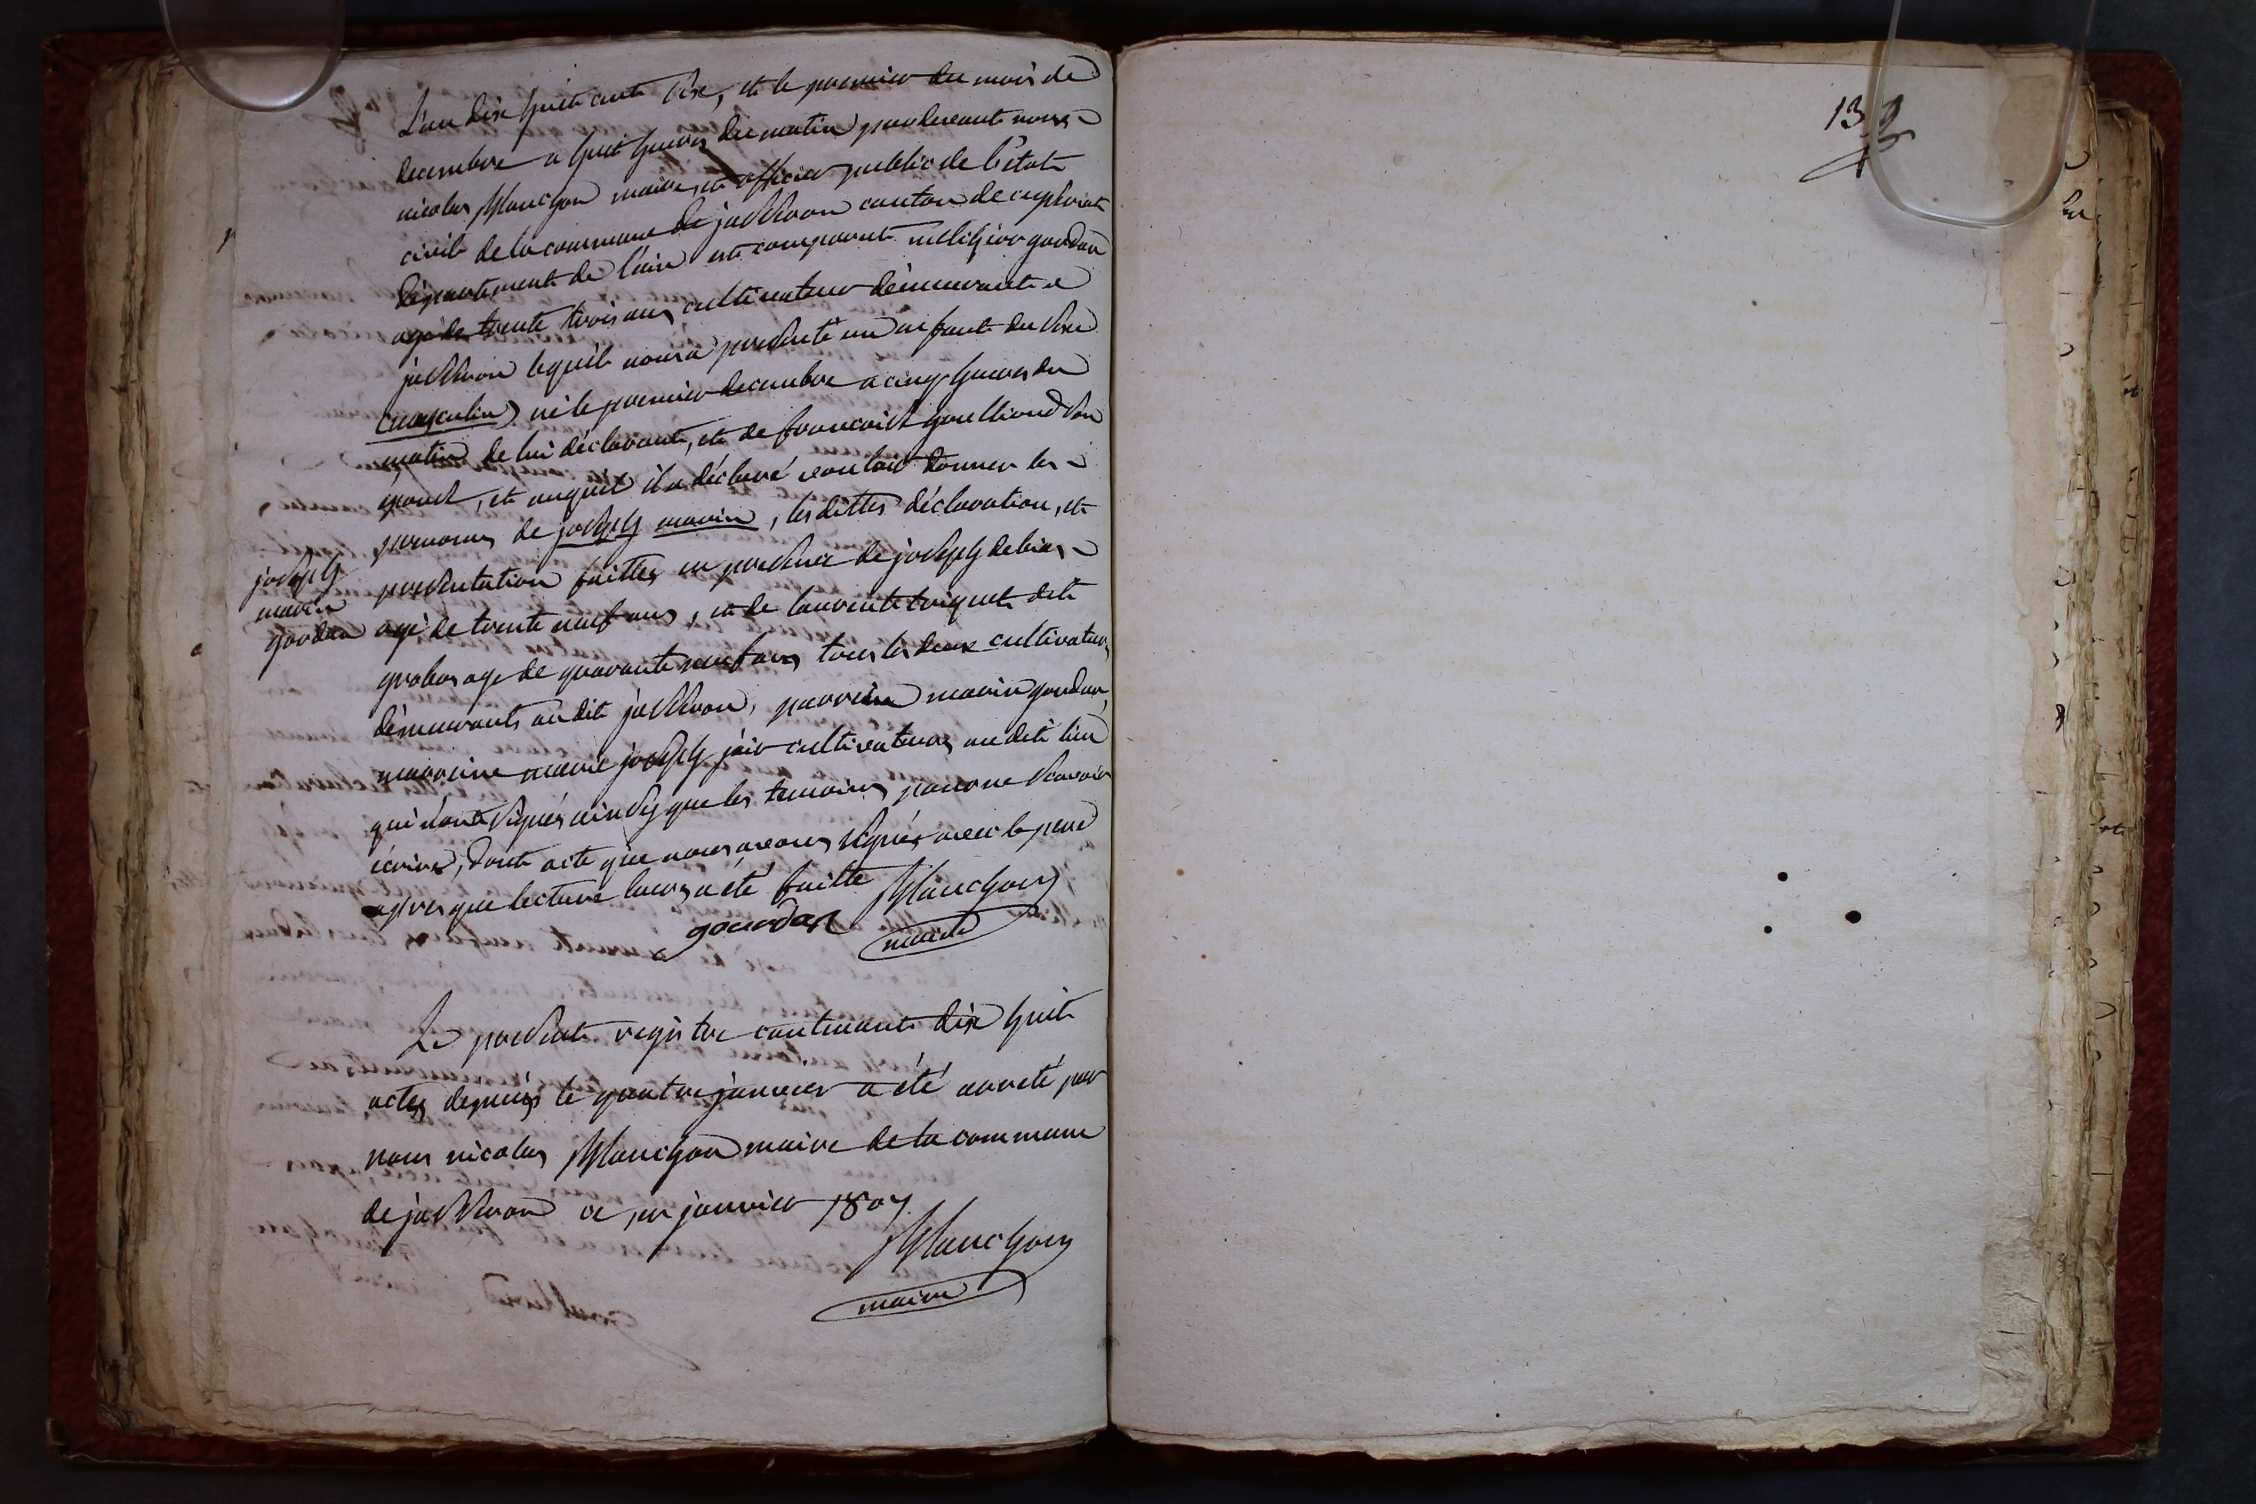 L'an dix huit cent six, et le premier du mois de
decembre a huit heures du matin pardevant nous
nicolas planchon maire, et officier public de l'état
civil de la commune de jasseron canton de ceyzeriat
département de l'ain est comparut melchior gordan
agé de trente trois ans, cultivateur démeurant a
jasseron lequel nous a presenté un enfant du sexe
masculin né le premier decembre a cinq heures du
matin de lui déclarant, et de francoise goulliond son
epouse, et auquel il a déclaré vouloir donner les
prenoms de joseph marin, les dittes déclaration, et
presentation faittes en presence de joseph debias
agé de trente neuf ans, et de laurent broquet dit
grobas agé de quarante neuf ans tous les deux cultivateurs
démeurants au dit jasseron, parrein marin gordan,
marreine marie joseph join cultivateurs au dit lieu
qui n'ont signés ainsy que les temoins pour ne scavoir
écrire, dont acte que nous avons signés avec le pere
apres que lecture leurs a été faitte
gourdan planchon
maire
joseph
marin
gordan
Le present registre contenant dix huit
actes dépuis le quatre janvier a été arreté par
nous nicolas planchon maire de la commune
de jasseron ce per janvier 1807
planchon
maire